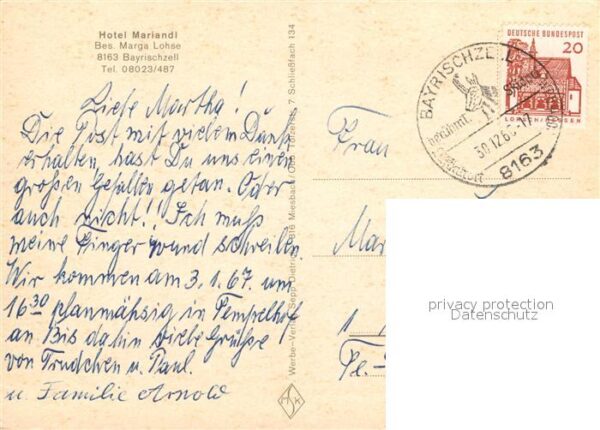 Hotel Mariandl
Bes. Marga Lohse
8163 Bayrischzell
Tel. 08023/487
Liebe Martha!
Die Post mit vielem Dank
erhalten, hast Du uns einen
großen Gefallen getan. Oder
auch nicht!! Ich muß
meine Finger wund schreiben.
Wir kommen am 3.1.67. um
16 30 planmähsig in Tempelhof
an Bis dahin viele Grüße
von Trudchen u. Paul.
u. Familie Arnold
Werbe-Verlag 816 Miesbach/Obb 7 Schließfach 134
DEUTSCHE BUNDESPOST
20
BAYRISCHZELL
berühmt.
30.12.66-17
8163
Frau
Ma
1
privacy protection
Datenschutz